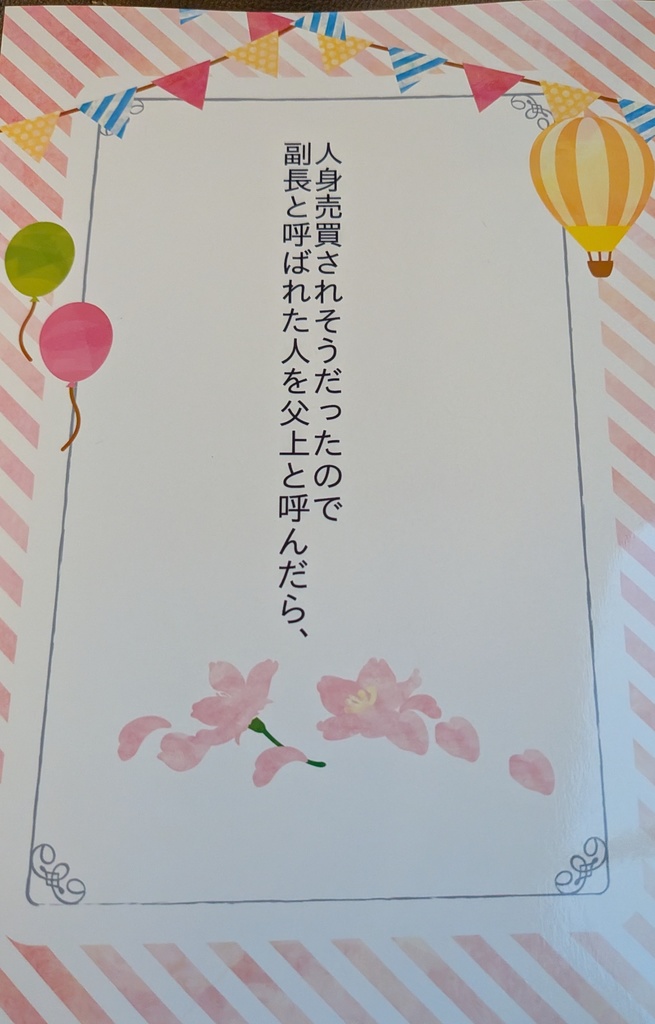 人身売買されそうだったので
副長と呼ばれた人を父上と呼んだら、